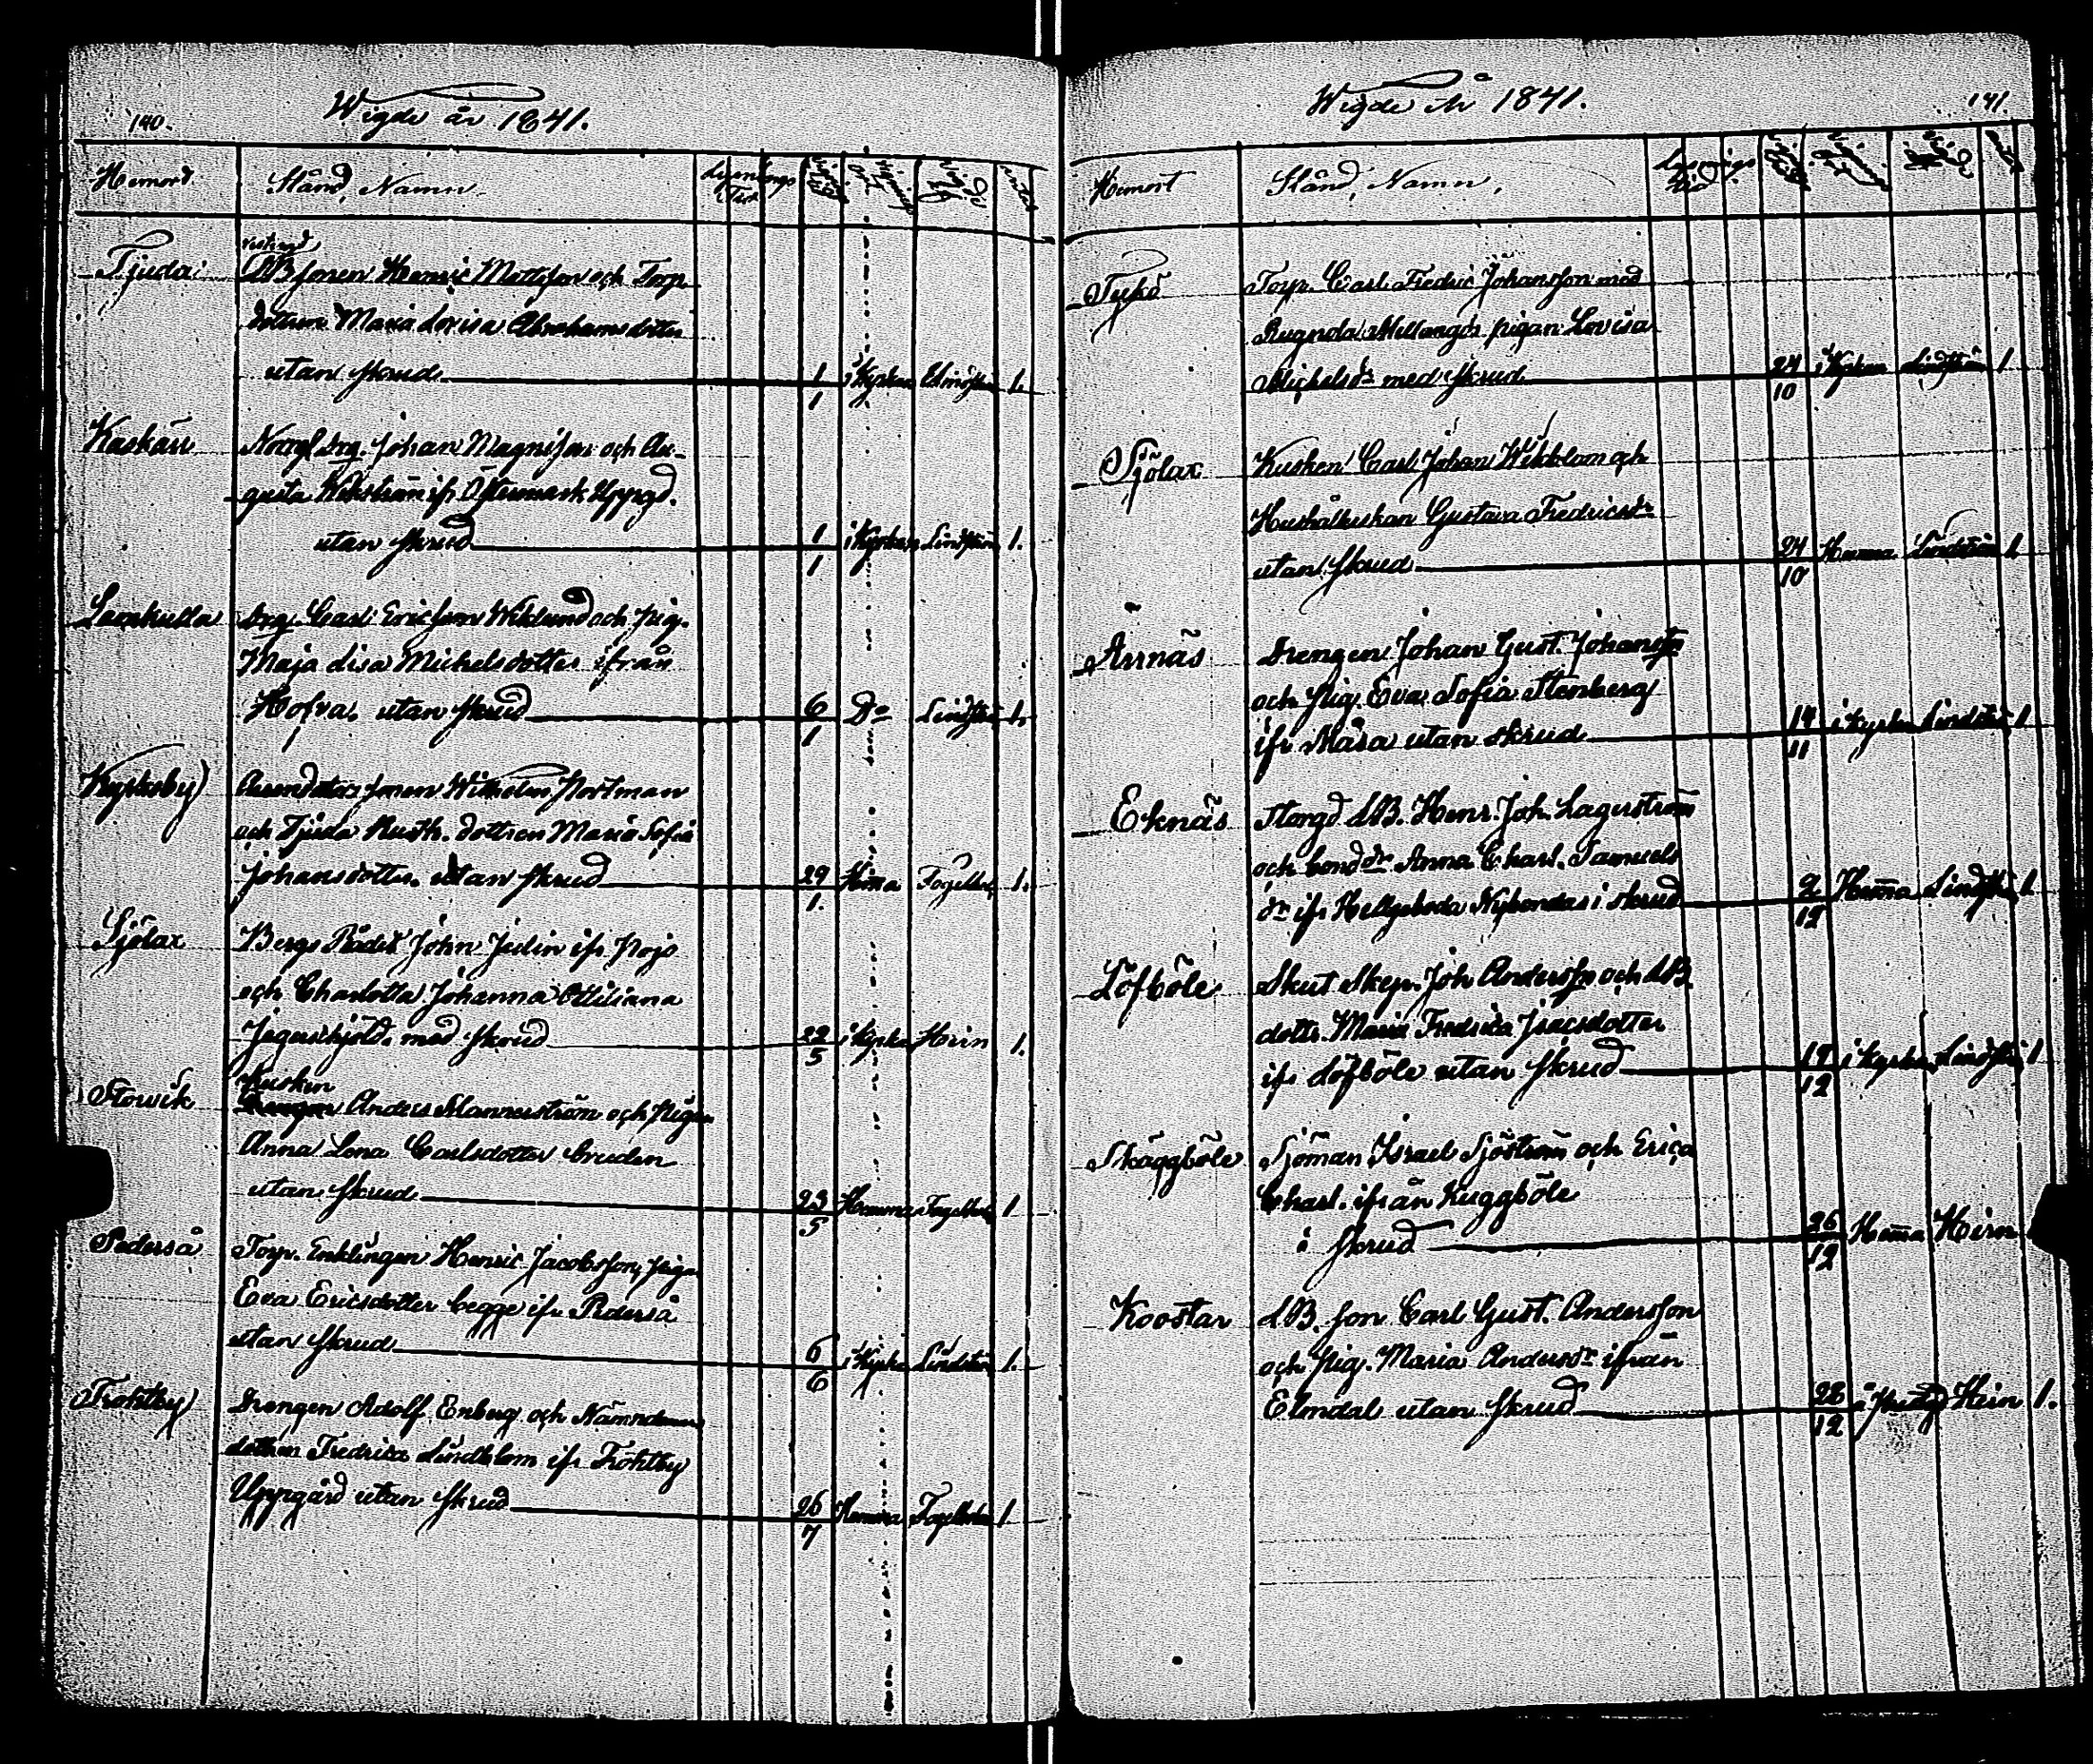 140.
Wigde år 1841.
Hemord Stånd, Namn Lysnings Tid
Tjuda
LBsonen Henric Mattsson och Torp
dottren Maria Lovisa Abrahamsdotter
utan skrud 1/1 i Kyrkan Lindströ 1.
Kaskärr Norrgl drg. Johan Magnisson och Au-
gusta Wikström ifr Östermark Uppgd.
utan skrud 1/1 i Kyrkan Lindström 1.
Lamkulla drg. Carl Ericsson Wiklund och pig.
Maja Lisa Michelsdotter ifrån
Hofva. utan skrud 6/1 Do Lindströ 1.
Kyrkoby Arendators sonen Wilhelm Nortman
och Tjuda Rusth. dottren Maria Sofia
Johansdotter. utan skrud 29/1. Hema Fogelber 1.
Sjölax Bergs Rådet John Julin ifr Pojo
och Charlotta Johanna Ottiliana
Jegerskjöld, med skrud 22/5 i Kyrka Hirn 1.
Kusken
Storvik Drengen Anders Mannerström och Pigan
Anna Lena Carlsdotter bruden
utan skrud 23/5 Hemma Fogelber 1
Pederså Torp. Enklingen Henric Jacobsson, piga
Eva Ericsdotter begge ifr Pederså
utan skrud 6/6 i Kyrka Lindström 1.
Tröhtby Drengen Adolf Enberg och Nämndem
dottren Fredrica Lindblom ifr Tröhtby
Uppgård utan skrud 26/7 Hemma Fogelber 1.
Wigde År 1841.
141.
Hemort Stånd, Namn, Lysnings tid
Tykö Torp. Carl Fredric Johansson med
Rugnola Mellangds pigan Lovisa
Michelsdr med skrud 24/10 i Kyrkan Lindström 1
Sjölax Kusken Carl Johan Wikblom och
Hushållerskan Gustava Fredricsdr
utan skrud 24/10 Hemma Lindström 1
Årnäs Drengen Johan Gust. Johansson
och pig. Eva Sofia Stenberg
ifr Måsa utan skrud 14/11 i Kyrka Lindströ 1
Eknäs Storgd LB. Henr. Joh. Lagerström
och bond dr Anna Charl. Samuels
dr ifr Helgeboda Nybondas i skrud 2/12 Hemma Lindströ 1
Löfböle Skut Skep. Joh Andersson och LB.
dottr. Maria Fredrica Isacsdotter
ifr Löfböle utan skrud 19/12 i Kyrka Lindströ 1
Skäggböle Sjöman Israel Sjöström och Erica
Charl. ifrån Kuggböle
i skrud 26/12 Hemma Hirn
Koostar LB. son Carl Gust. Andersson
och pig. Maria Andersdr ifrån
Elmdal utan skrud 28/12 Hirn 1.